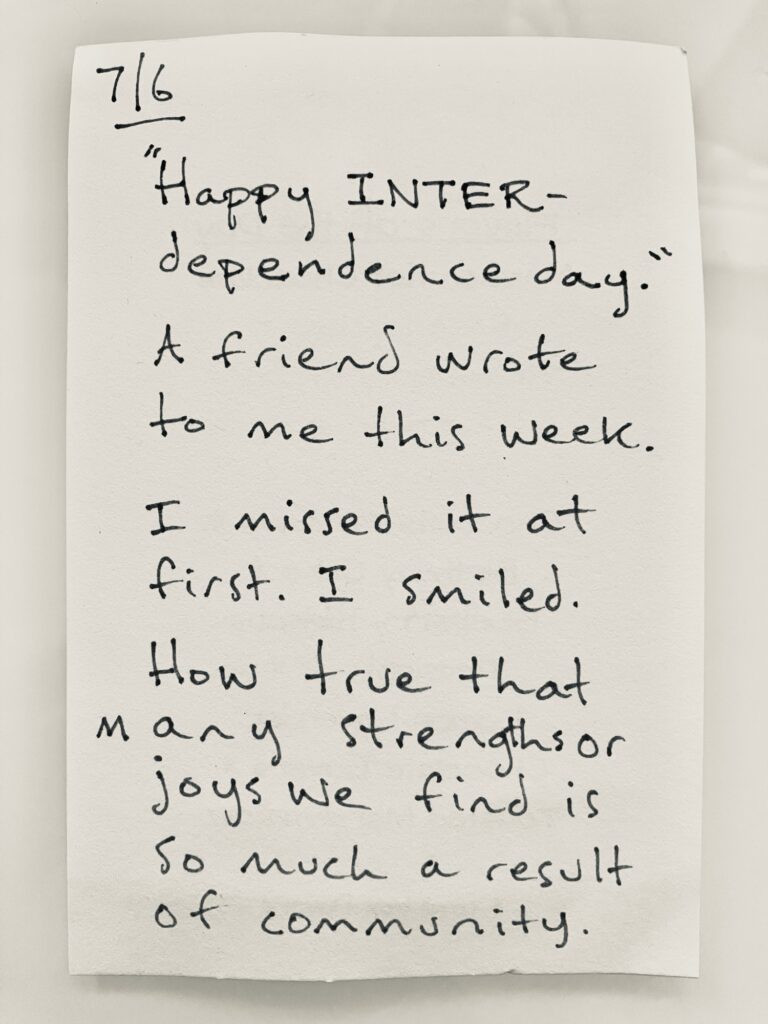 7/6
"Happy INTER-
dependence day."
A friend wrote
to me this week.
I missed it at
first. I smiled.
How true that
many strengths or
joys we find is
so much a result
of community.